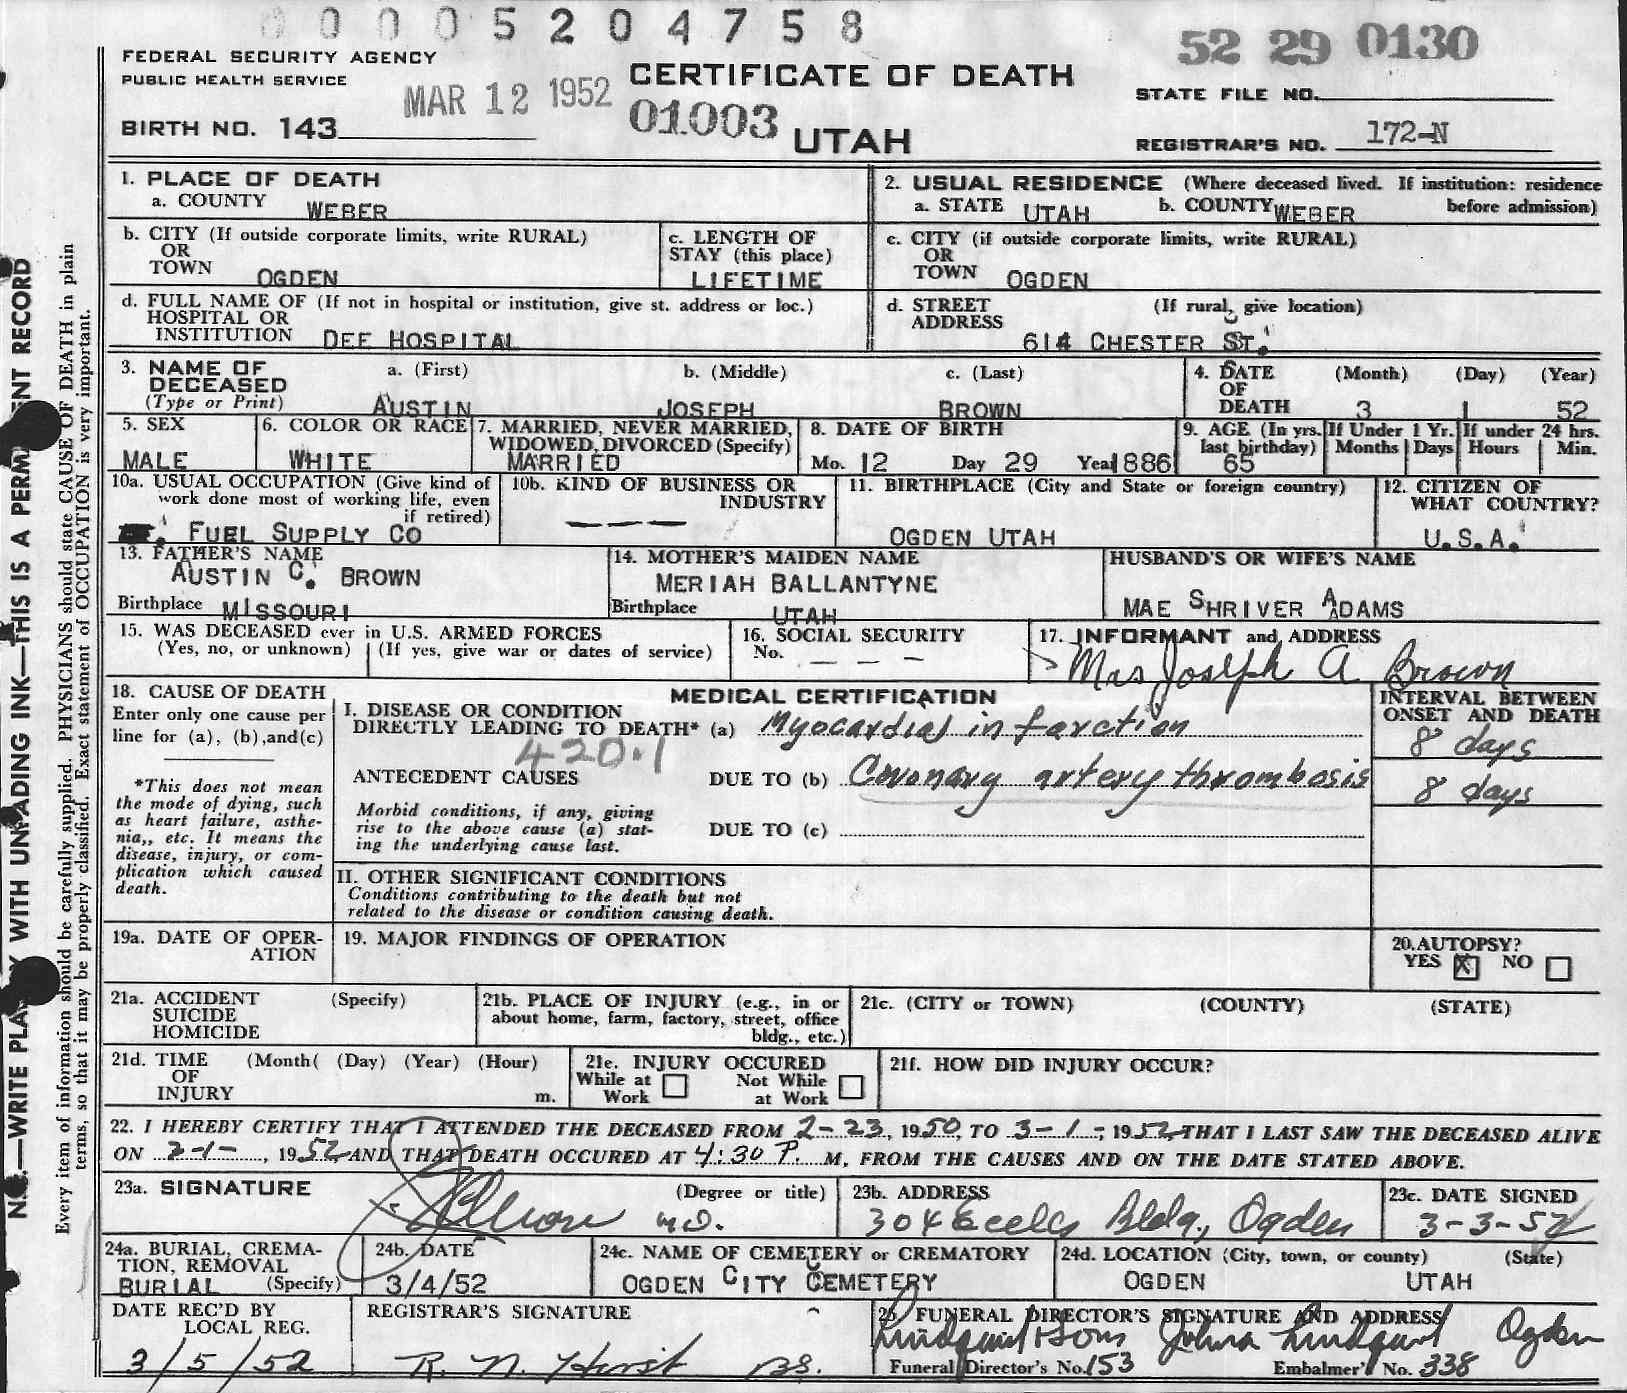 0 0 0 0 5 2 0 4 7 5 8
52 29 0130
FEDERAL SECURITY AGENCY
PUBLIC HEALTH SERVICE
MAR 12 1952
CERTIFICATE OF DEATH
STATE FILE NO.
BIRTH NO. 143
01003
UTAH
REGISTRAR'S NO. 172-N
1. PLACE OF DEATH
a. COUNTY WEBER
2. USUAL RESIDENCE (Where deceased lived. If institution: residence before admission)
a. STATE UTAH b. COUNTY WEBER
b. CITY (If outside corporate limits, write RURAL)
OR
TOWN OGDEN
c. LENGTH OF
STAY (this place)
LIFETIME
c. CITY (if outside corporate limits, write RURAL)
OR
TOWN OGDEN
d. FULL NAME OF (If not in hospital or institution, give st. address or loc.)
HOSPITAL OR
INSTITUTION DEE HOSPITAL
d. STREET (If rural, give location)
ADDRESS
614 CHESTER ST.
3. NAME OF
DECEASED
(Type or Print)
a. (First) b. (Middle) c. (Last)
AUSTIN JOSEPH BROWN
4. DATE (Month) (Day) (Year)
OF
DEATH 3 1 52
5. SEX
MALE
6. COLOR OR RACE
WHITE
7. MARRIED, NEVER MARRIED,
WIDOWED, DIVORCED (Specify)
MARRIED
8. DATE OF BIRTH
Mo. 12 Day 29 Year 1886
9. AGE (In yrs.
last birthday)
65
If Under 1 Yr.
Months Days
If under 24 hrs.
Hours Min.
10a. USUAL OCCUPATION (Give kind of
work done most of working life, even
if retired)
FUEL SUPPLY CO
10b. KIND OF BUSINESS OR
INDUSTRY
— — —
11. BIRTHPLACE (City and State or foreign country)
OGDEN UTAH
12. CITIZEN OF
WHAT COUNTRY?
U.S.A.
13. FATHER'S NAME
AUSTIN C. BROWN
Birthplace MISSOURI
14. MOTHER'S MAIDEN NAME
MERIAH BALLANTYNE
Birthplace UTAH
HUSBAND'S OR WIFE'S NAME
MAE SHRIVER ADAMS
15. WAS DECEASED ever in U.S. ARMED FORCES
(Yes, no, or unknown) (If yes, give war or dates of service)
16. SOCIAL SECURITY
No. — — —
17. INFORMANT and ADDRESS
Mrs Joseph A Brown
18. CAUSE OF DEATH
Enter only one cause per
line for (a), (b),and(c)
*This does not mean
the mode of dying, such
as heart failure, asthe-
nia,, etc. It means the
disease, injury, or com-
plication which caused
death.
MEDICAL CERTIFICATION
I. DISEASE OR CONDITION
DIRECTLY LEADING TO DEATH* (a) Myocardial infarction
420.1
ANTECEDENT CAUSES DUE TO (b) Coronary artery thrombosis
Morbid conditions, if any, giving
rise to the above cause (a) stat-
ing the underlying cause last.
DUE TO (c)
INTERVAL BETWEEN
ONSET AND DEATH
8 days
8 days
II. OTHER SIGNIFICANT CONDITIONS
Conditions contributing to the death but not
related to the disease or condition causing death.
19a. DATE OF OPER-
ATION
19. MAJOR FINDINGS OF OPERATION
20. AUTOPSY?
YES X NO
21a. ACCIDENT (Specify)
SUICIDE
HOMICIDE
21b. PLACE OF INJURY (e.g., in or
about home, farm, factory, street, office
bldg., etc.)
21c. (CITY or TOWN) (COUNTY) (STATE)
21d. TIME (Month( (Day) (Year) (Hour)
OF
INJURY m.
21e. INJURY OCCURED
While at Work Not While at Work
21f. HOW DID INJURY OCCUR?
22. I HEREBY CERTIFY THAT I ATTENDED THE DECEASED FROM 2-23, 1950, TO 3-1-, 1952, THAT I LAST SAW THE DECEASED ALIVE
ON 2-1-, 1952, AND THAT DEATH OCCURED AT 4:30 P. M, FROM THE CAUSES AND ON THE DATE STATED ABOVE.
23a. SIGNATURE (Degree or title)
M.D.
23b. ADDRESS
304 Eccles Bldg., Ogden
23c. DATE SIGNED
3-3-52
24a. BURIAL, CREMA-
TION, REMOVAL
BURIAL (Specify)
24b. DATE
3/4/52
24c. NAME OF CEMETERY or CREMATORY
OGDEN CITY CEMETERY
24d. LOCATION (City, town, or county) (State)
OGDEN UTAH
DATE REC'D BY
LOCAL REG.
3/5/52
REGISTRAR'S SIGNATURE
R. N. Hirst BS.
25. FUNERAL DIRECTOR'S SIGNATURE AND ADDRESS
Lindquist & Sons John A Lindquist Ogden
Funeral Director's No. 153 Embalmer's No. 338
WRITE PLAINLY WITH UNFADING INK—THIS IS A PERMANENT RECORD
Every item of information should be carefully supplied. PHYSICIANS should state CAUSE OF DEATH in plain
terms, so that it may be properly classified. Exact statement of OCCUPATION is very important.